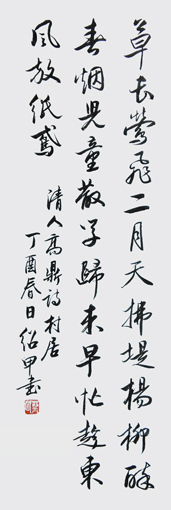 草长莺飛二月天拂堤楊柳醉
春烟児童散学歸来早忙趁東
風放纸鳶
清人高鼎詩村居
丁酉春日绍甲书